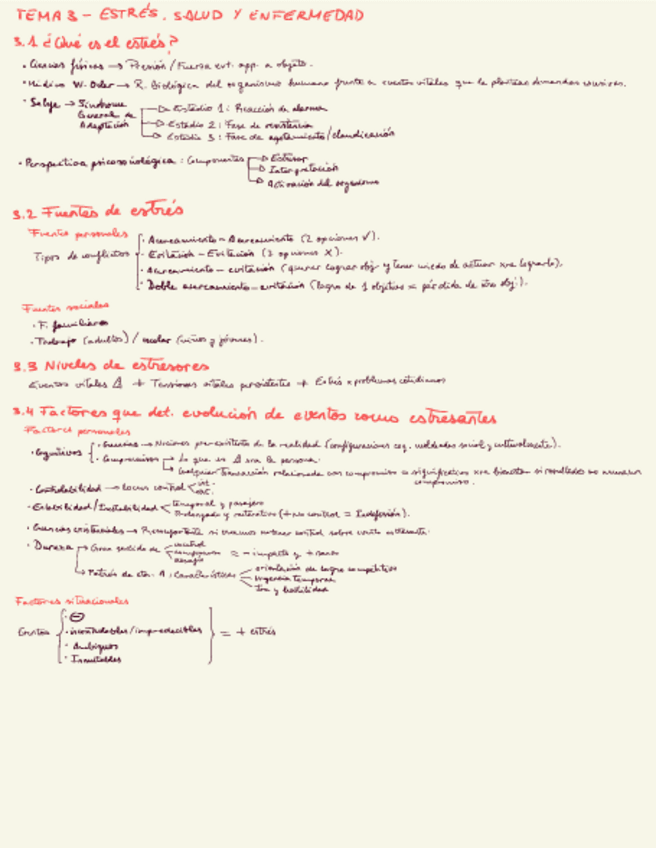 TEMA 3 - ESTRÉS, SALUD Y ENFERMEDAD
3.1 ¿Qué es el estrés?
• Ciencias físicas → Presión / Fuerza ext. app. a objeto.
• Médico W. Osler → R. Biológica del organismo humano frente a eventos vitales que le plantean demandas excesivas.
• Selye → Síndrome General de Adaptación
Estadio 1: Reacción de alarma
Estadio 2: Fase de resistencia
Estadio 3: Fase de agotamiento/claudicación
• Perspectiva psicosociológica: Componentes
Estresor
Interpretación
Activación del organismo
3.2 Fuentes de estrés
Fuentes personales
Tipos de conflictos
• Acercamiento - Acercamiento (2 opciones ✓).
• Evitación - Evitación (2 opciones X).
• Acercamiento - evitación (querer lograr obj. y tener miedo de actuar xra lograrlo).
• Doble acercamiento - evitación (logro de 1 objetivo = pérdida de otro obj.).
Fuentes sociales
• F. familiares
• Trabajo (adultos) / escolar (niños y jóvenes).
3.3 Niveles de estresores
Eventos vitales Δ + Tensiones vitales persistentes + Estrés x problemas cotidianos
3.4 Factores que det. evolución de eventos como estresantes
Factores personales
• Cognitivos
• Creencias → Nociones pre-existentes de la realidad (configuraciones cog. moldeadas social y culturalmente).
• Compromisos → Lo que es Δ xra la persona.
Cualquier transacción relacionada con compromiso es significativa xra bienestar si resultado no
compromiso.
• Controlabilidad → locus control < int. ext.
• Estabilidad / Inestabilidad < temporal y pasajero
Prolongado y reiterativo (+ no control = Indefensión).
• Creencias existenciales →
• Dureza
Gran sentido de
control
compromiso
desafío
= - impacto y + sano
Patrón de cta. A: Características
orientación de logro competitivo
urgencia temporal
Ira y hostilidad
Factores situacionales
Eventos
• ⊖
• incontrolables / impredecibles
• Ambiguos
• Inevitables
= + estrés